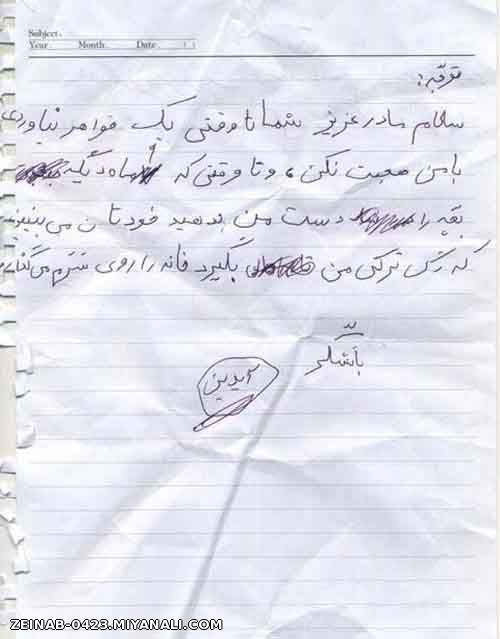 Subject.
Year. Month. Date. ( )
توجه:
سلام مادر عزیز شما تا وقتی یک خواهر نیاوردی
با من صحبت نکن، و تا وقتی که ماه دیگه
بچه را دست من بدهید خودتان می بینید
که رگ ترکی من بگیرد خانه را روی سرم می گذارم
باتشکر
آیدین
ZEINAB-0423.MIYANALI.COM